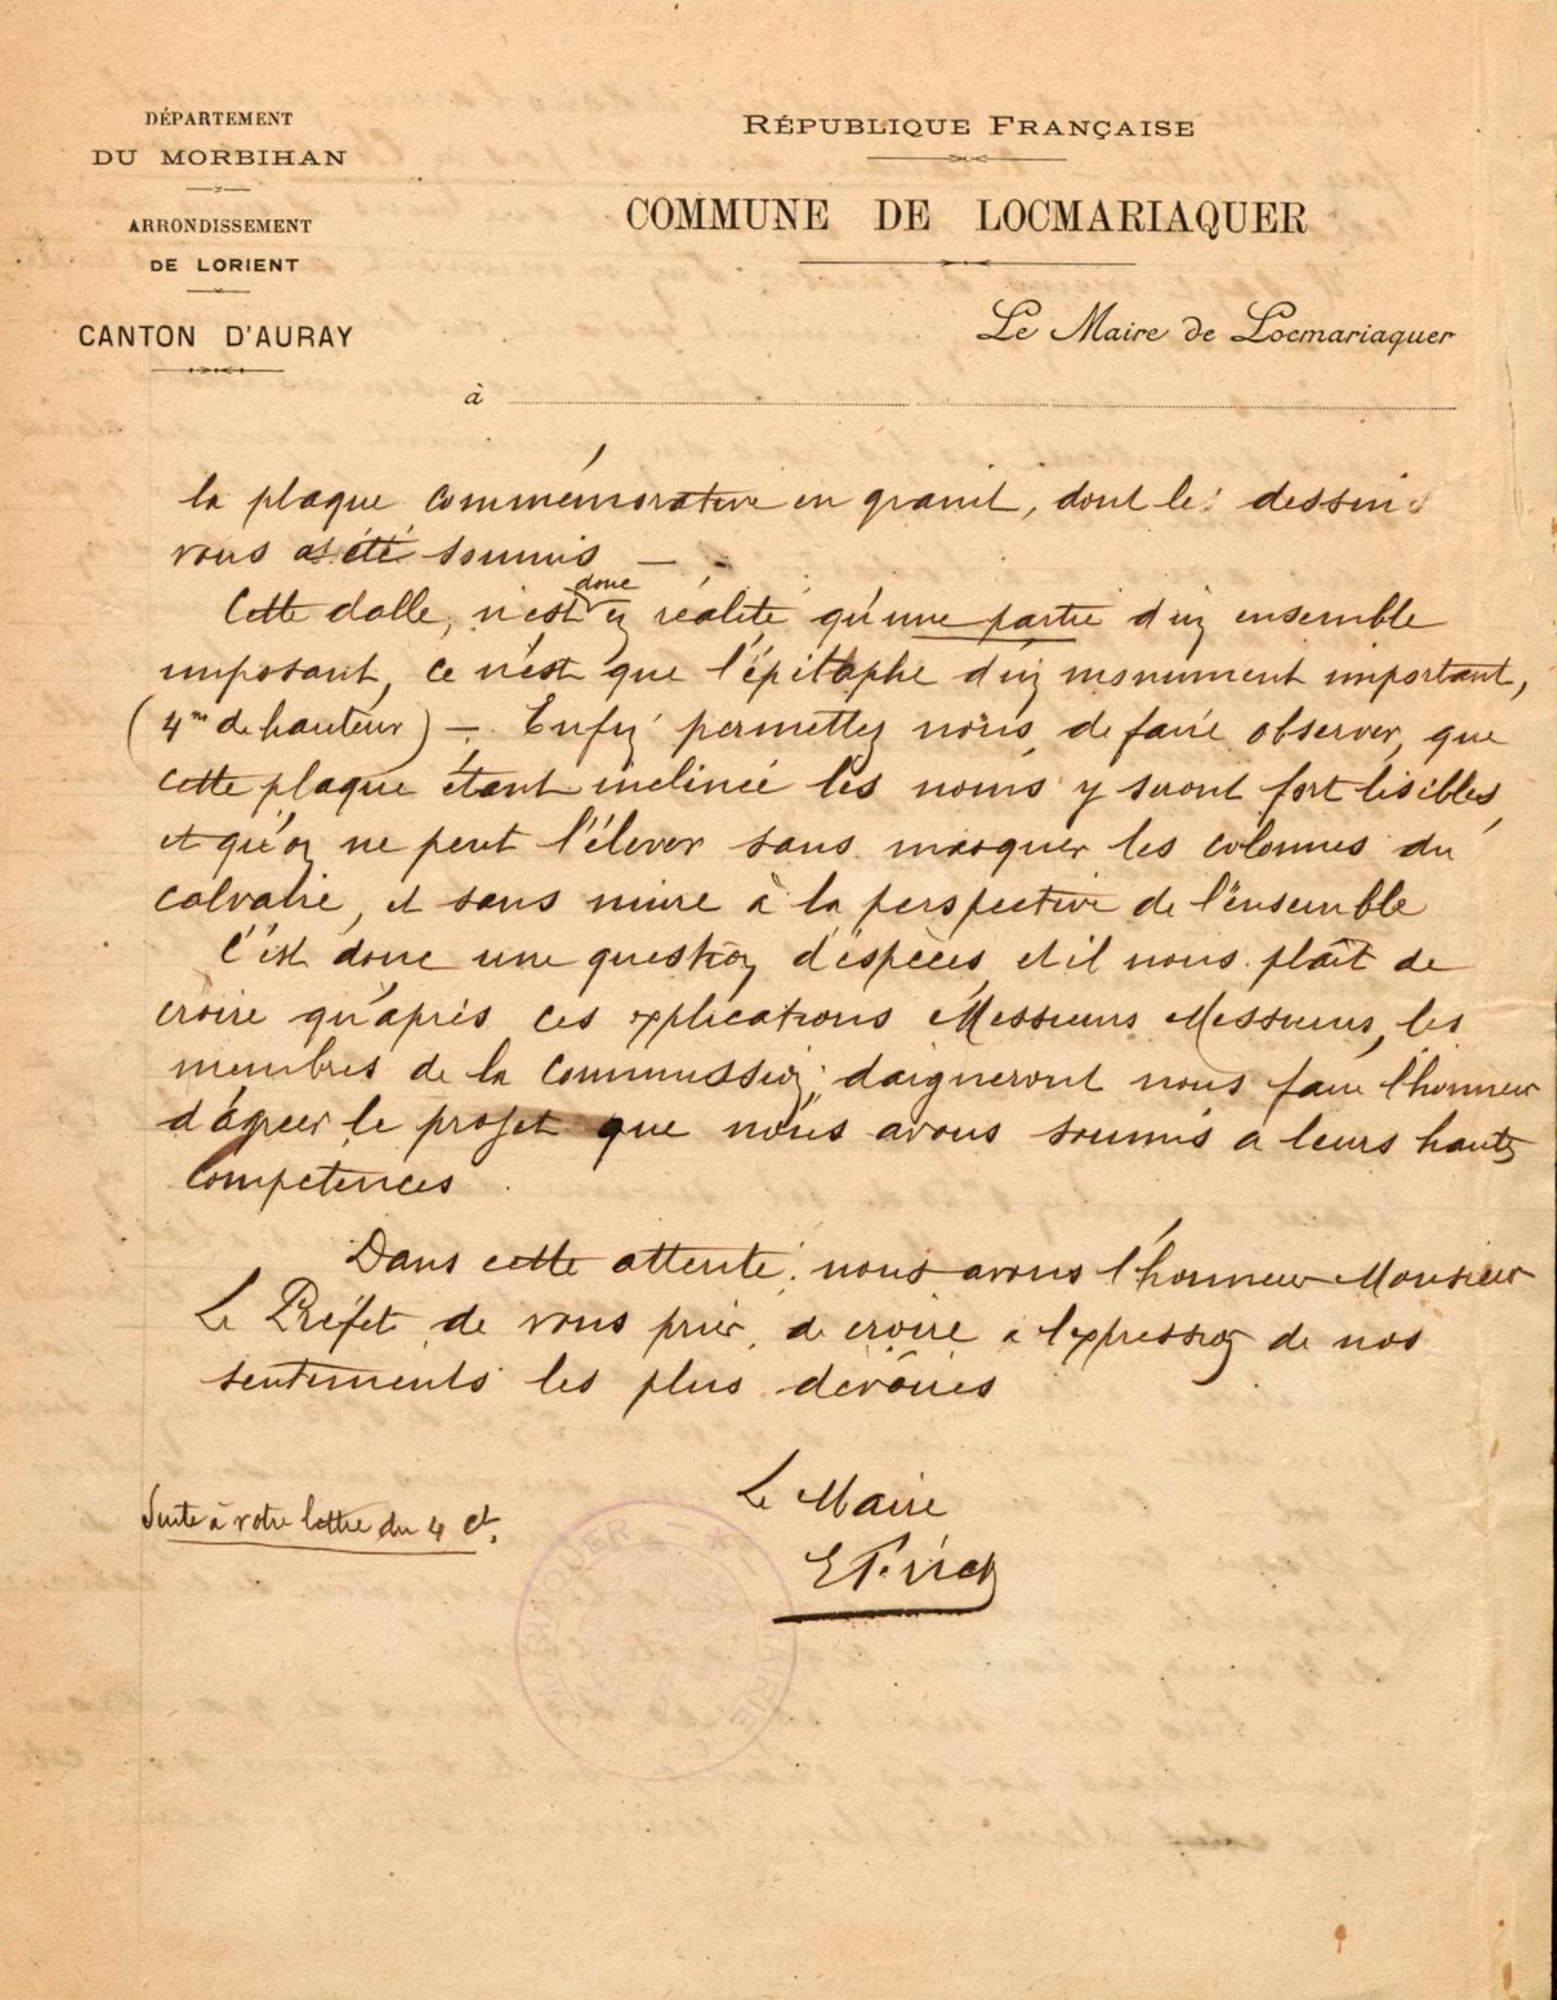 DÉPARTEMENT
DU MORBIHAN
ARRONDISSEMENT
DE LORIENT
CANTON D'AURAY
RÉPUBLIQUE FRANÇAISE
COMMUNE DE LOCMARIAQUER
Le Maire de Locmariaquer
à
la plaque commémorative en granit, dont le dessin
vous a été soumis —
Cette dalle, n'est donc en réalité qu'une partie d'un ensemble
imposant, ce n'est que l'épitaphe d'un monument important,
(4m de hauteur) — Enfin permettez nous de faire observer, que
cette plaque étant inclinée les noms y seront fort lisibles,
et qu'on ne peut l'élever sans masquer les colonnes du
calvaire, et sans nuire à la perspective de l'ensemble
C'est donc une question d'espèces, et il nous plaît de
croire qu'après ces explications Messieurs Messieurs, les
membres de la Commission, daigneront nous faire l'honneur
d'agréer le projet que nous avons soumis a leurs hautes
competences
Dans cette attente, nous avons l'honneur Monsieur
Le Préfet de vous prier, de croire a l'expression de nos
sentiments les plus dévoués
Suite à votre lettre du 4 ct.
Le Maire
LOCMARIAQUER
MAIRIE